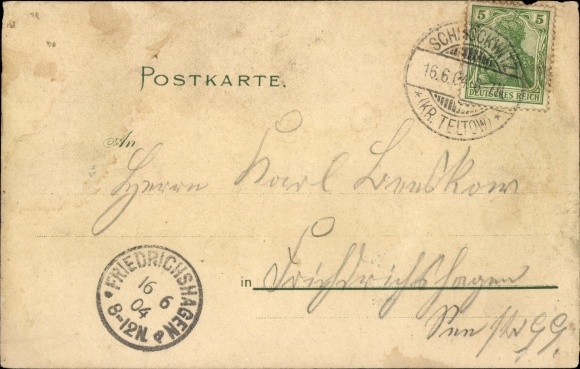 5 5
DEUTSCHES REICH
SCHMÖCKWITZ
16.6.04
*(KR. TELTOW)*
POSTKARTE.
An
Herrn Karl Beeskow
in Friedrichshagen
FRIEDRICHSHAGEN
16 6
04
8-12N.